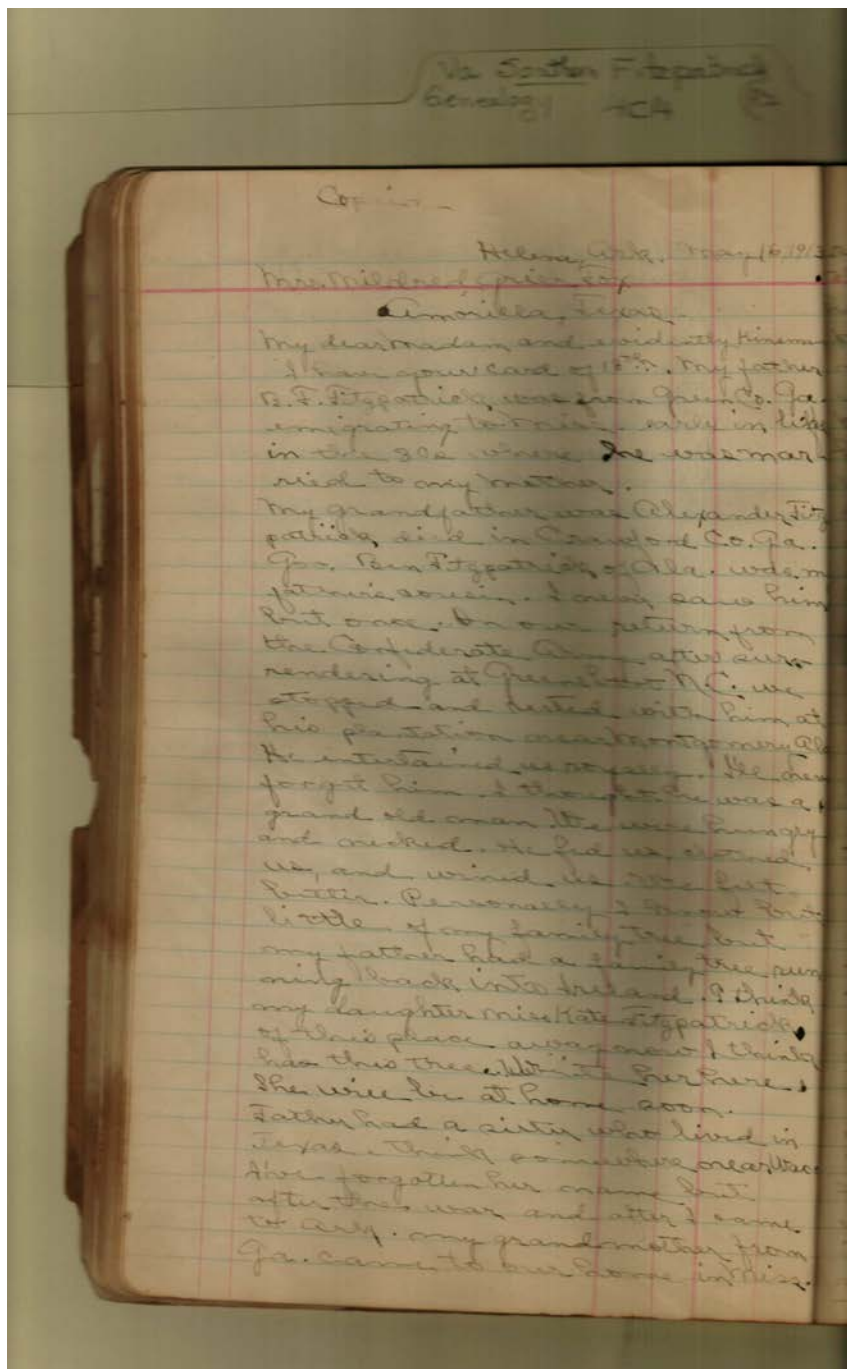 Va Southern Fitzpatrick
Genealogy
Helena, Ark. May 16, 1913
Mrs. Mildred Grier Fox
Amorilla, Texas.
My dear Madam and evidently Kinswoman
I have your card of 13th. My father
B. F. Fitzpatrick, was from Green Co. Ga.
emigrating to Miss. early in life
in the 30s where he was mar-
ried to my mother.
My grandfather was Alexander Fitz
patrick, died in Crawford Co. Ga.
Gov. Ben Fitzpatrick of Ala. was my
father's cousin. I never saw him
but once. On our return from
the Confederate Army after sur-
rendering at N.C. we
stopped and rested with him at
his plantation near Montgomery Ala
He entertained us royally.
forget him. I thought he was a
grand old man. We were hungry
and necked. He fed us, clothed
us, and wined us
better. Personally I know but
little of my family tree but
my father had a family tree run
ning back into Ireland. I think
my daughter Miss Kate Fitzpatrick,
of this place away now I think
has this tree. Write her here.
She will be at home soon.
Father had a sister who lived in
Texas. think somewhere near Waco
I've forgotten her name but
after the war and after I came
to Ark. my grandmother from
Ga. came to our home in Miss.